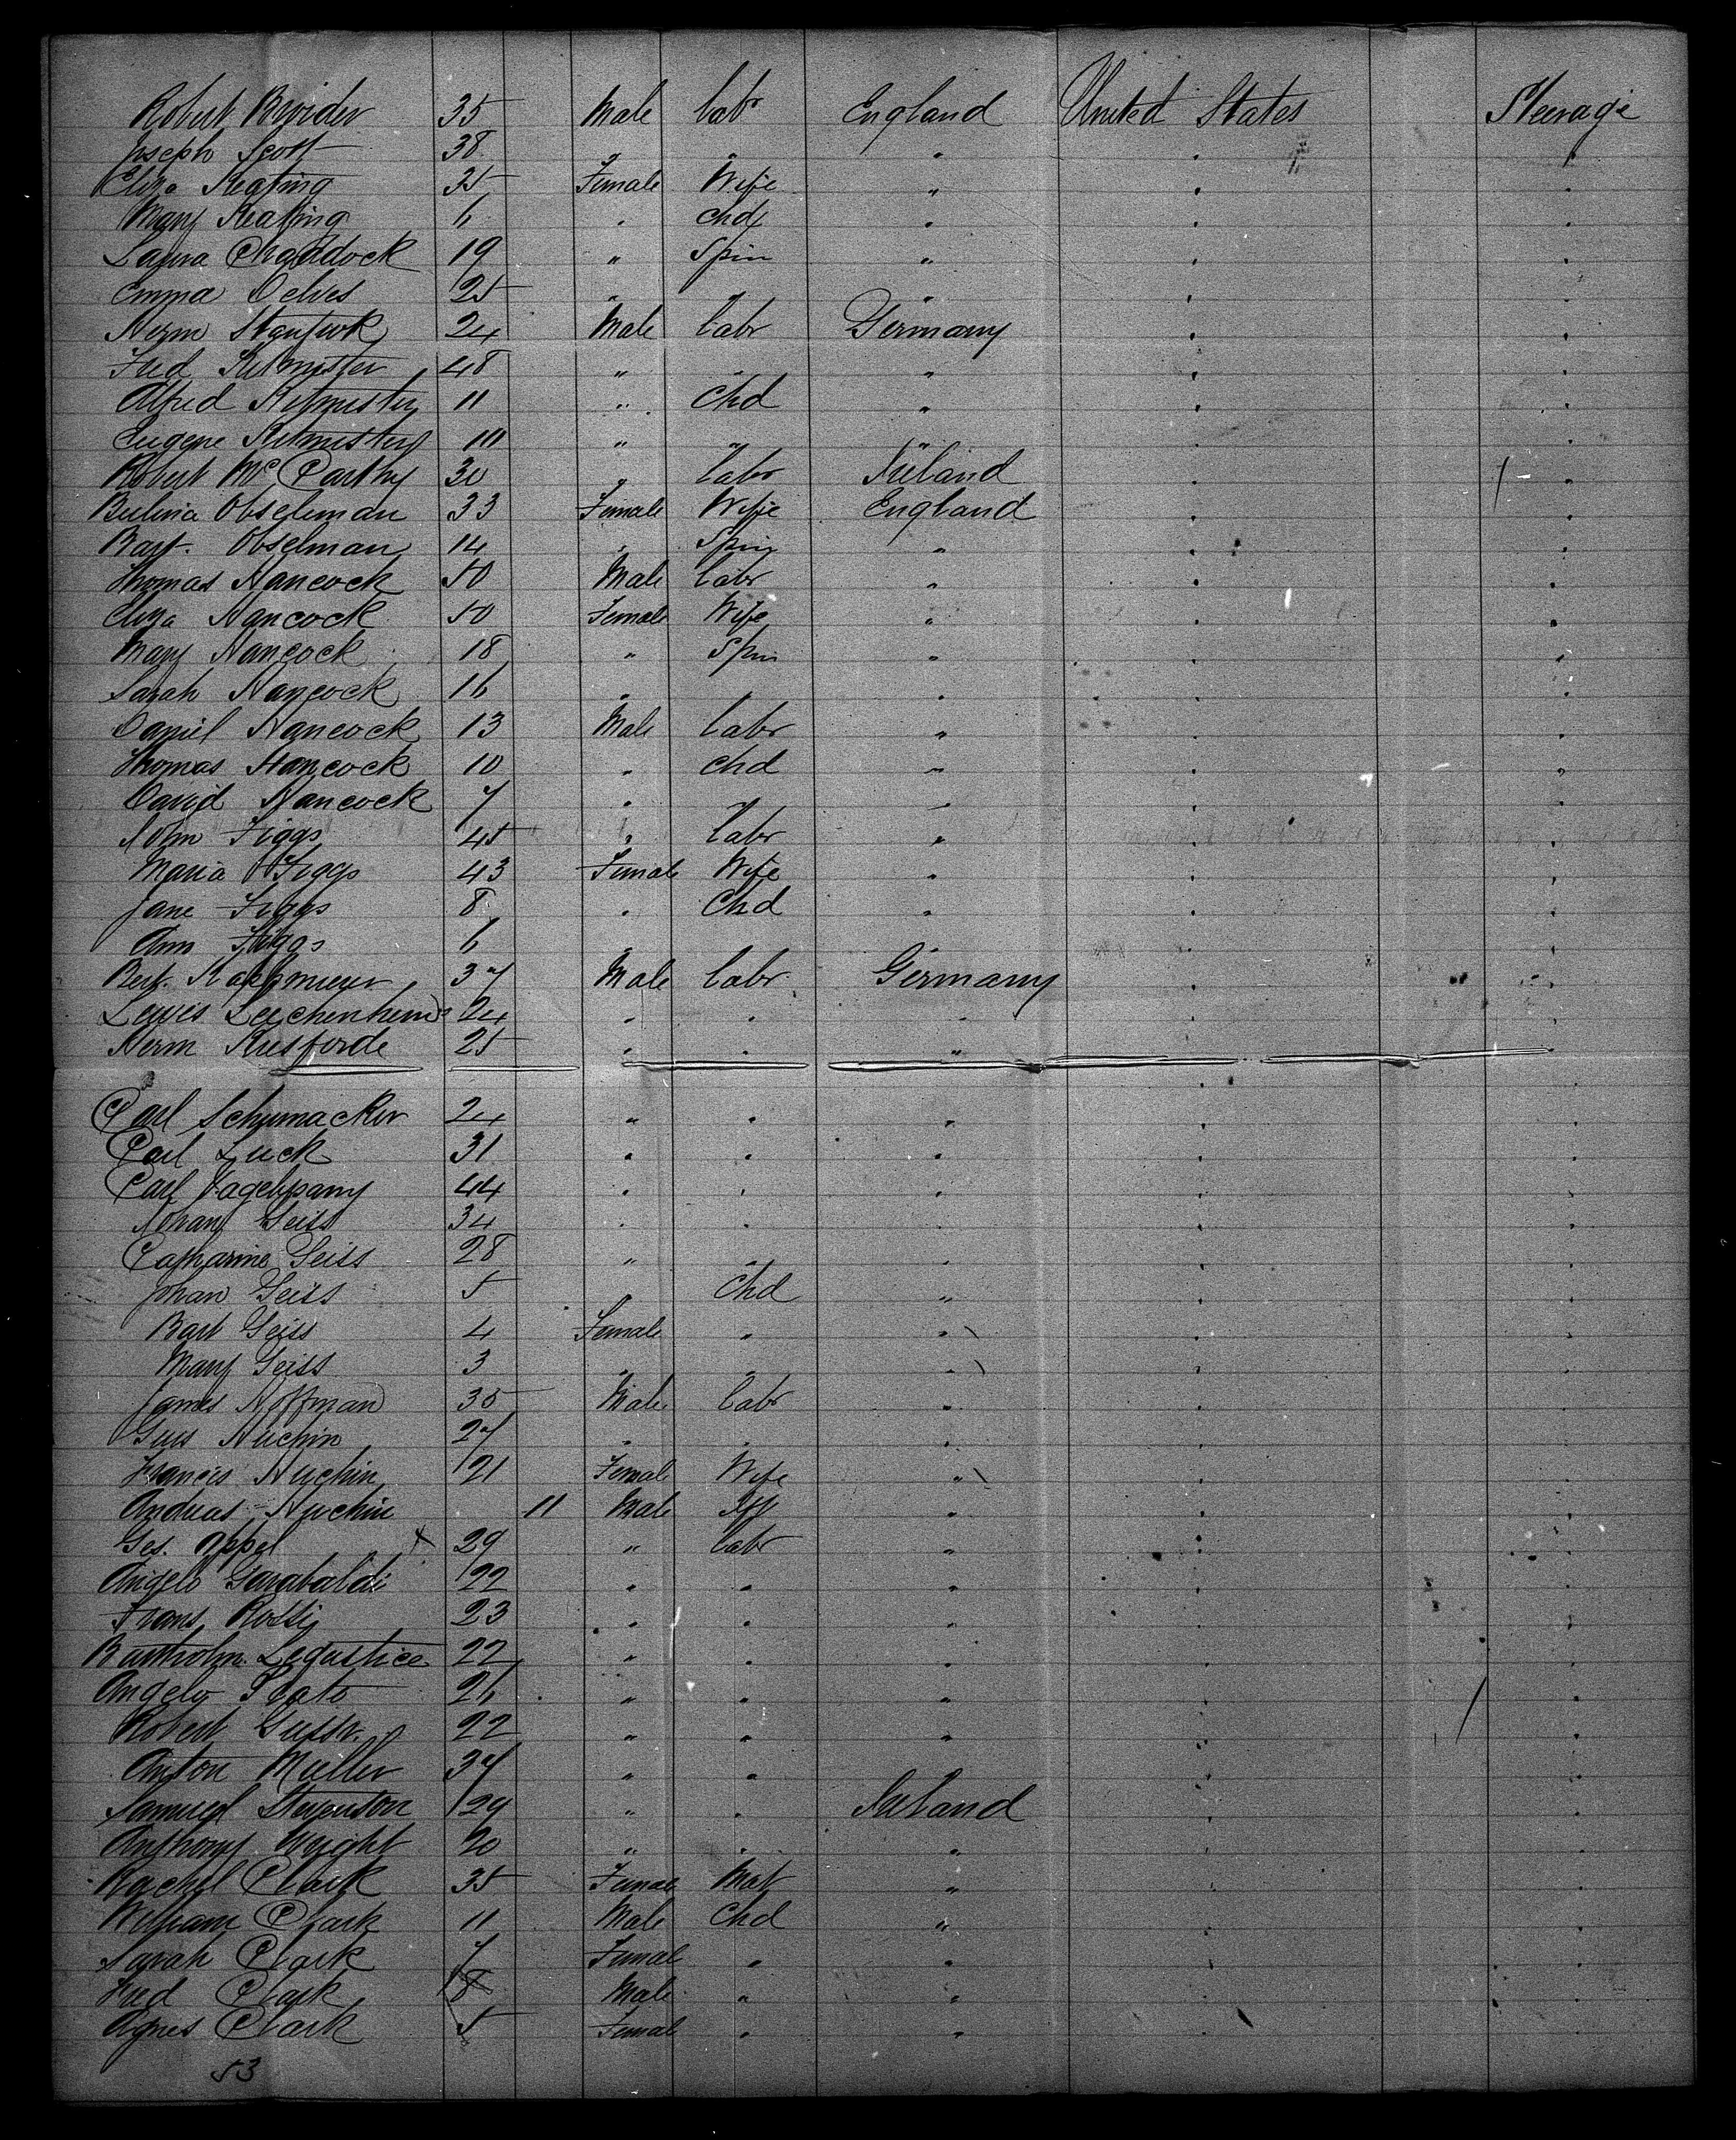 Robert Brvider 35 Male Labr England United States Steerage
Joseph Scott 38 " " " " "
Eliza Keating 35 Female Wife " " "
Mary Keating 6 " Chd " " "
Laura Chaddock 19 " Spin " " "
Emma Delves 25 " " " " "
Herm 24 Male Labr Germany " "
Fred Kitmister 48 " " " " "
Alfred Kitmister 11 " Chd " " "
Eugene Kitmister 10 " " " " "
Robert McCarthy 30 " Labr Ireland " "
Obselman 33 Female Wife England " "
Bart. Obselman 14 " Spin " " "
Thomas Hancock 50 Male Labr " " "
Eliza Hancock 50 Female Wife " " "
Mary Hancock 18 " Spin " " "
Sarah Hancock 16 " " " " "
Daniel Hancock 13 Male Labr " " "
Thomas Hancock 10 " Chd " " "
David Hancock 7 " " " " "
John Figgs 45 " Labr " " "
Maria Figgs 43 Female Wife " " "
Jane Figgs 8 " Chd " " "
Ann Figgs 6 " " " " "
37 Male Labr Germany " "
Lewis 24 " " " " "
Herm Kusforde 25 " " " " "
Carl Schumacker 24 " " " " "
Carl Luck 31 " " " " "
Carl 44 " " " " "
Johan Geiss 34 " " " " "
Catharine Geiss 28 " " " " "
Johan Geiss 5 " Chd " " "
Bart Geiss 4 Female " " " "
Mary Geiss 3 " " " " "
James Hoffman 35 Male Labr " " "
Gus Huchin 27 " " " " "
Francis Huchin 21 Female Wife " " "
Andreas Huchin 11 Male Inf " " "
Ges. Appel x 29 " Labr " " "
Angelo Garabaldi 22 " " " " "
Frans Rossi 23 " " " " "
Bartholm. Legustice 22 " " " " "
Angelo Scato 26 " " " " "
Robert 22 " " " " "
Anton Muller 37 " " " " "
Samuel Stevenson 29 " " Ireland " "
Anthony Wright 20 " " " " "
Rachel Clark 35 Female Mat " " "
William Clark 11 Male Chd " " "
Sarah Clark 7 Female " " " "
Fred Clark 8 Male " " " "
Agnes Clark 5 Female " " " "
53